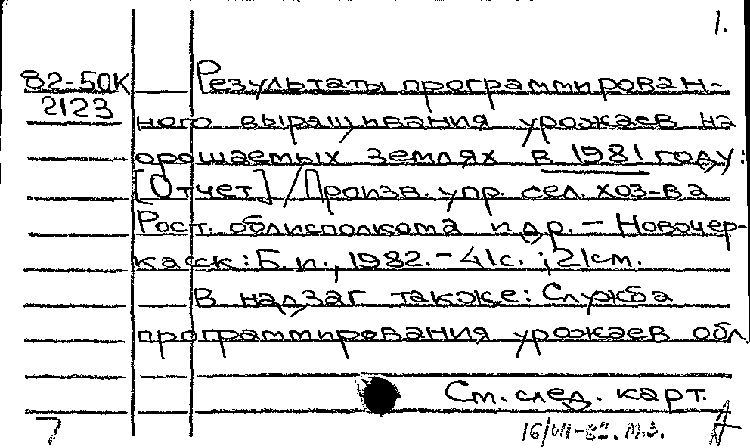 1.
82-50К Результаты программирован-
2123 ного выращивания урожаев на
орошаемых землях в 1981 году:
[Отчет] / Произв. упр. сел. хоз-ва
Рост. облисполкома и др. – Новочер-
касск: Б. и., 1982. – 41 с. ; 21 см.
В надзаг также: Служба
программирования урожаев обл
См. след. карт.
7 16/VII-82. М.З.